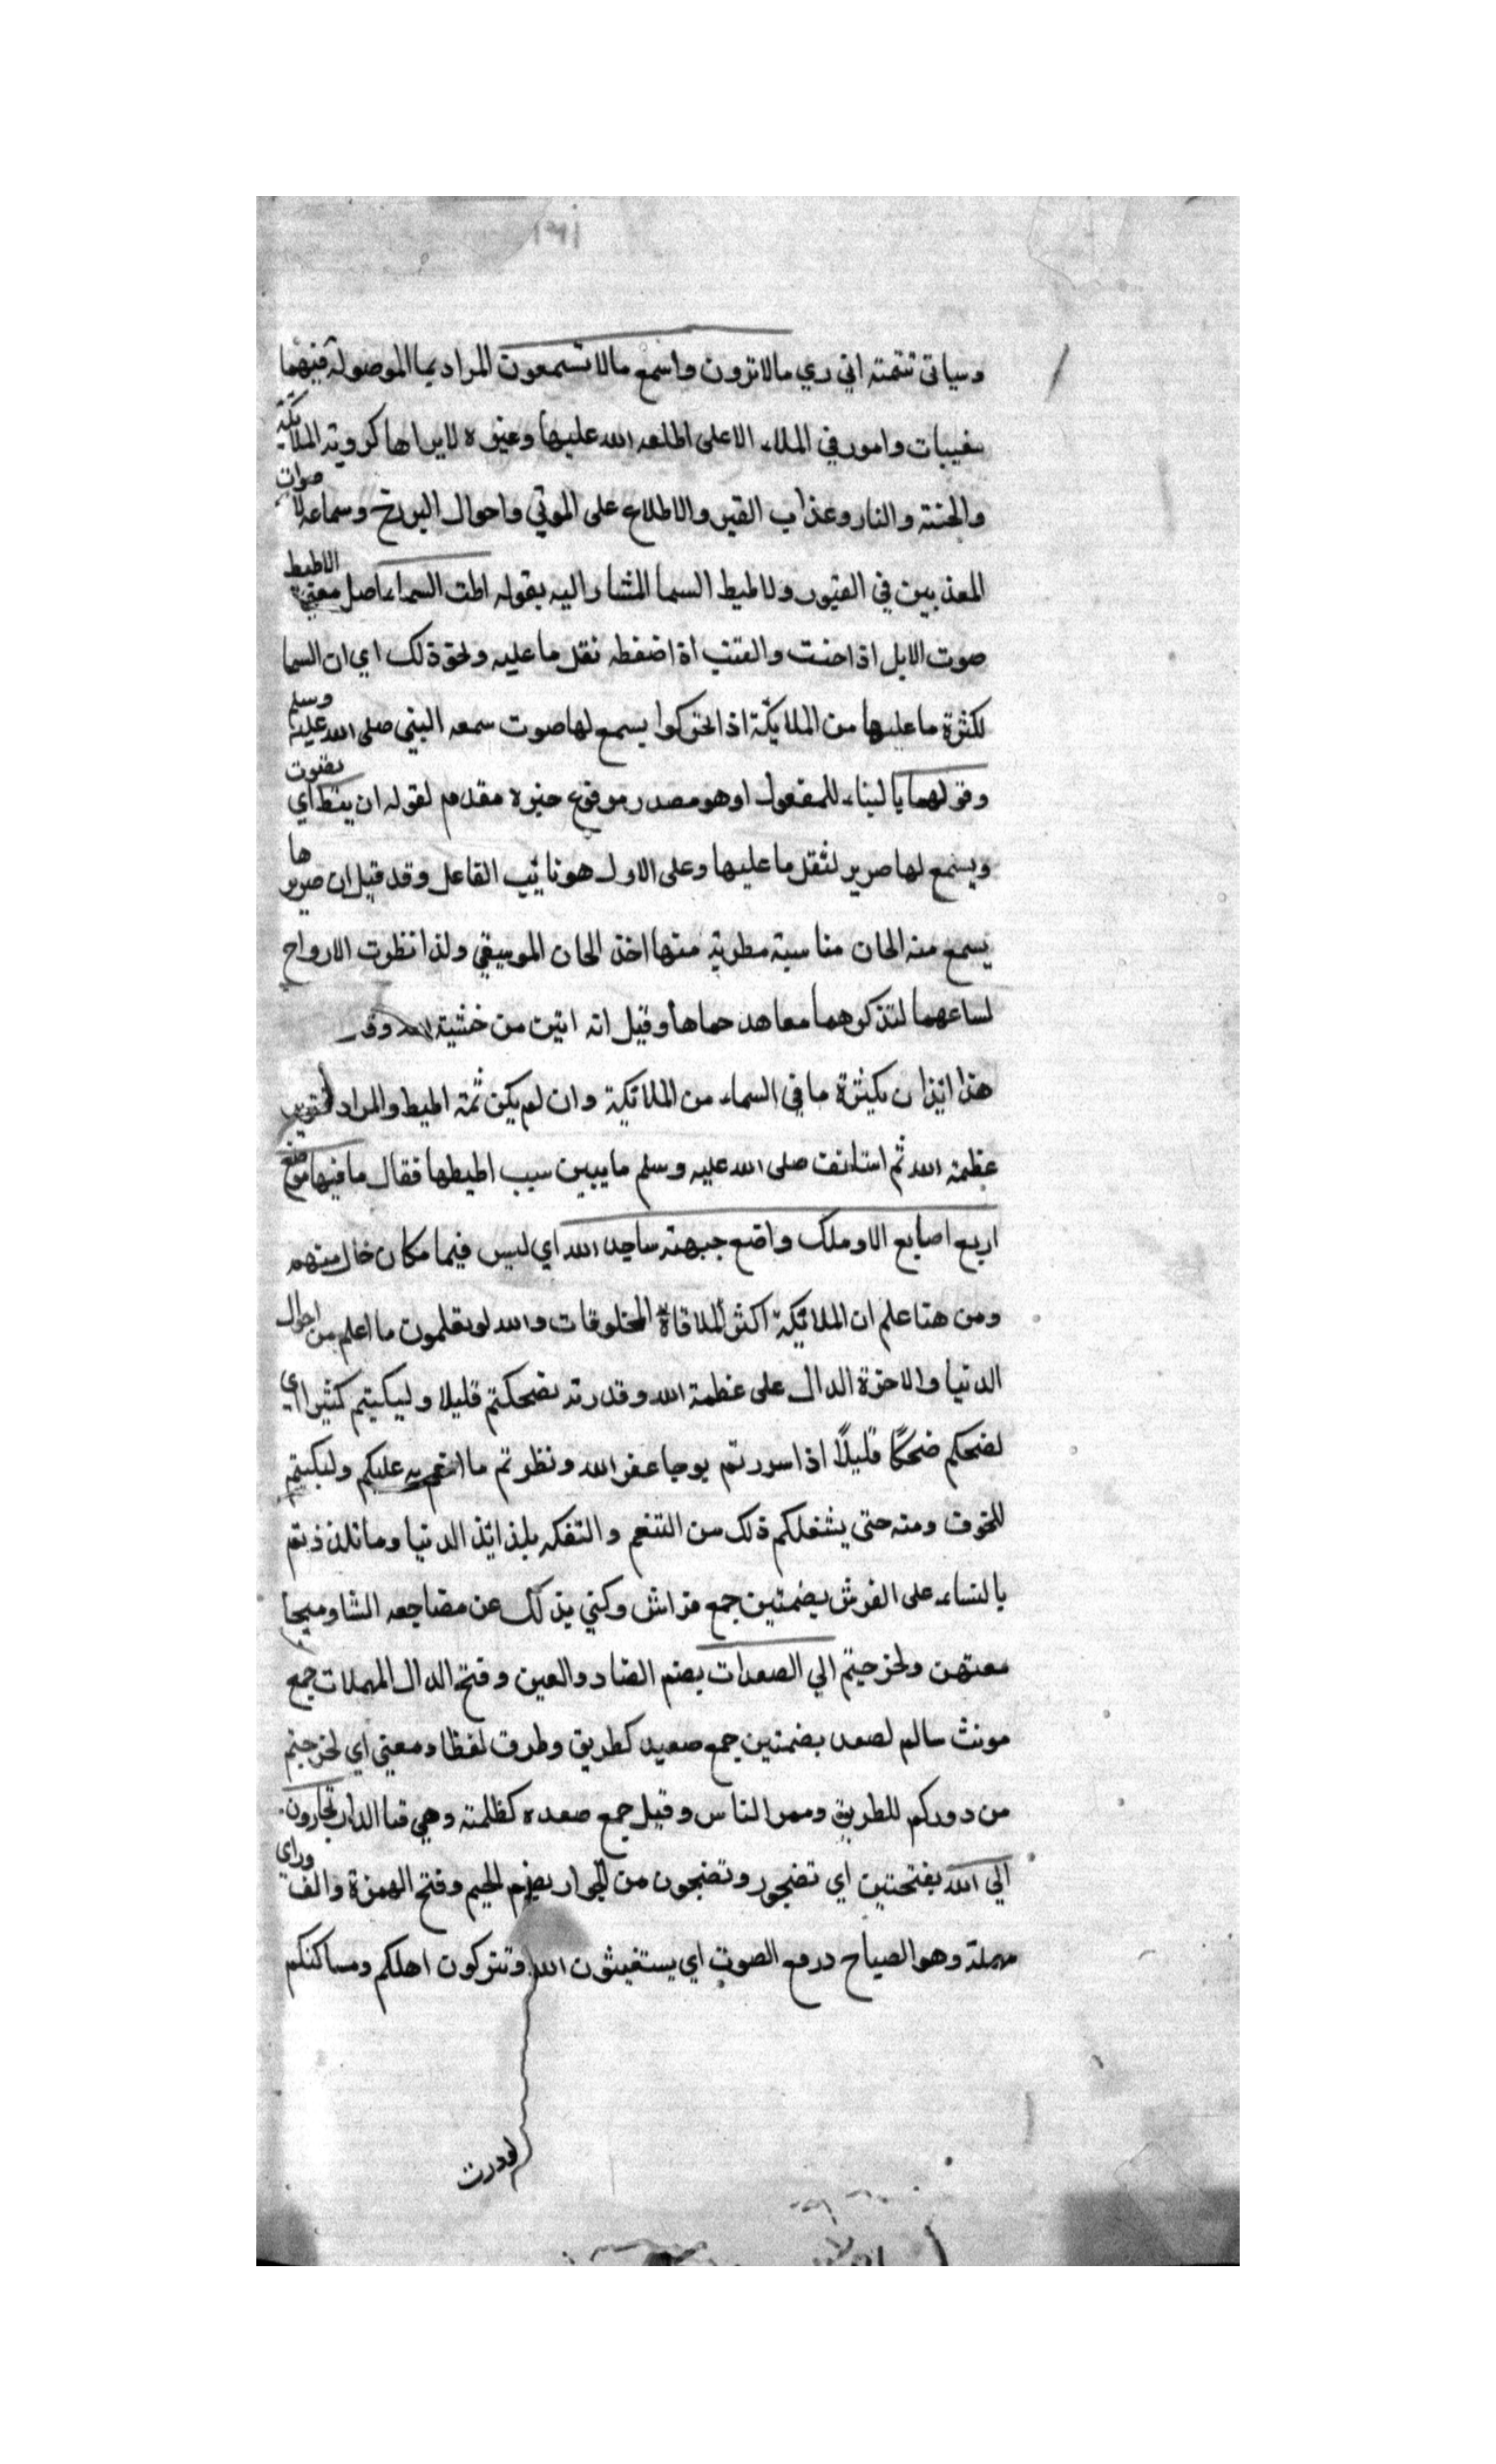 ١٣١
وسياتي تتمته اني اري مالا ترون واسمع مالا تسمعون المراد بما الموصولة فيهما
مغيبات وامور في الملاء الاعلى اطلعه الله عليها وغيره لايراها كروية الملائكة
والجنة والنار وعذاب القبر والاطلاع على الموتي واحوال البرزخ وسماعه لاصوات
المعذبين في القبور ولاطيط السما المشار اليه بقوله اطت السماء اصل معني الاطيط
صوت الابل اذا حنت والقتب اذا ضغطه ثقل ما عليه ونحو ذلك اي ان السما
لكثرة ما عليها من الملايكة اذا تحركوا يسمع لها صوت سمعه النبي صلى الله عليه وسلم
وقولهما بالبناء للمفعول اوهو مصدر مرفوع خبره مقدم لقوله ان ينط اي بصوت
ويسمع لها صرير لثقل ما عليها وعلى الاول هو نائب الفاعل وقد قيل ان صريرها
يسمع منه الحان مناسبة مطربة منها اخذ الحان الموسيقي ولذا نظرت الارواح
لسماعهما لتذكرهما معاهد حماها وقيل انه انين من خشية الله وقـ
هذا ايذان بكثرة ما في السماء من الملائكة وان لم يكن ثمة اطيط والمراد تقرير
عظمة الله ثم استانف صلى الله عليه وسلم ما يبين سبب اطيطها فقال ما فيها موضع
اربع اصابع الا وملك واضع جبهته ساجد الله اي ليس فيها مكان خال منهم
ومن هنا علم ان الملائكة اكثر المخلوقات والله لو تعلمون ما اعلم من احوال
الدنيا والاخرة الدال على عظمة الله وقدرته لضحكتم قليلا ولبكيتم كثيرا اي
لضحكم ضحكا قليلاً اذا سررتم برجا عفو الله ونظرتم ما انعم به عليكم ولبكيتم
للخوف ومنه حتى يشغلكم ذلك من التنعم والتفكه بلذائذ الدنيا وما تلذذتم
بالنساء على الفرش بضمتين جمع فراش وكني بذلك عن مضاجعه النسا وميحا
معتهن ولخرجتم الي الصعدات بضم الصاد والعين وفتح الدال المهملات جمع
مونث سالم لصعد بضمتين جمع صعيد كطريق وطرق لفظا ومعني اي لخرجتم
من دوركم للطريق وممر الناس وقيل جمع صعده كظلمة وهي فنا الدار تجارون
الي الله بفتحتين اي تضجور وتضجون من الجوار بضم الجيم وفتح الهمزة والف وراي
مهملة وهو الصياح ورفع الصوت اي يستغيثون الله وتتركون اهلكم ومساكنكم
لوددت